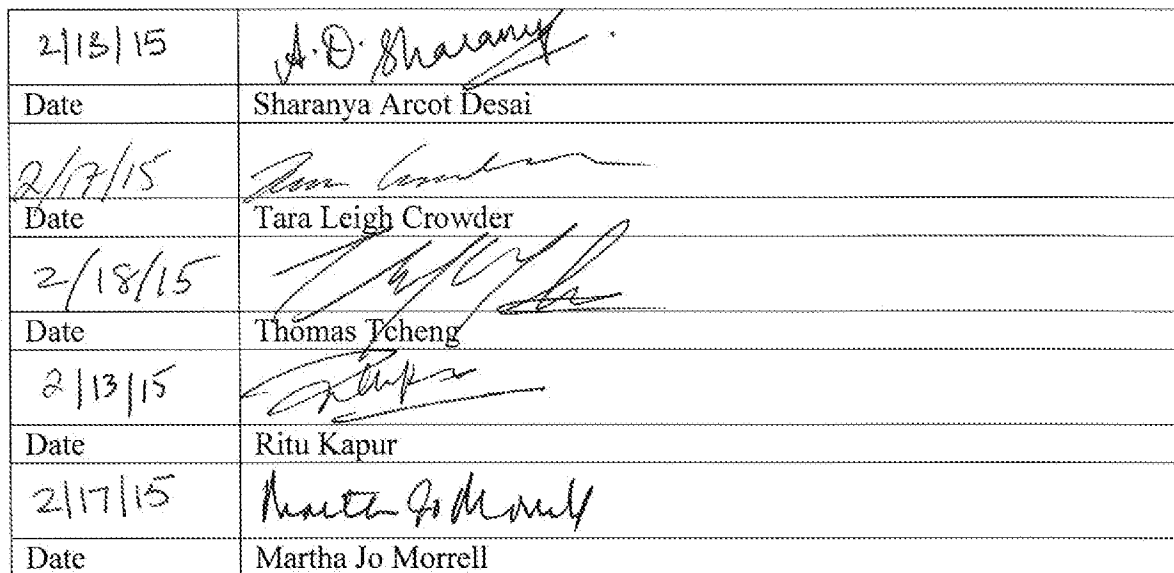 2/13/15 A.D. Sharanya
Date Sharanya Arcot Desai
2/17/15
Date Tara Leigh Crowder
2/18/15
Date Thomas Tcheng
2/13/15
Date Ritu Kapur
2/17/15 Martha Jo Morrell
Date Martha Jo Morrell